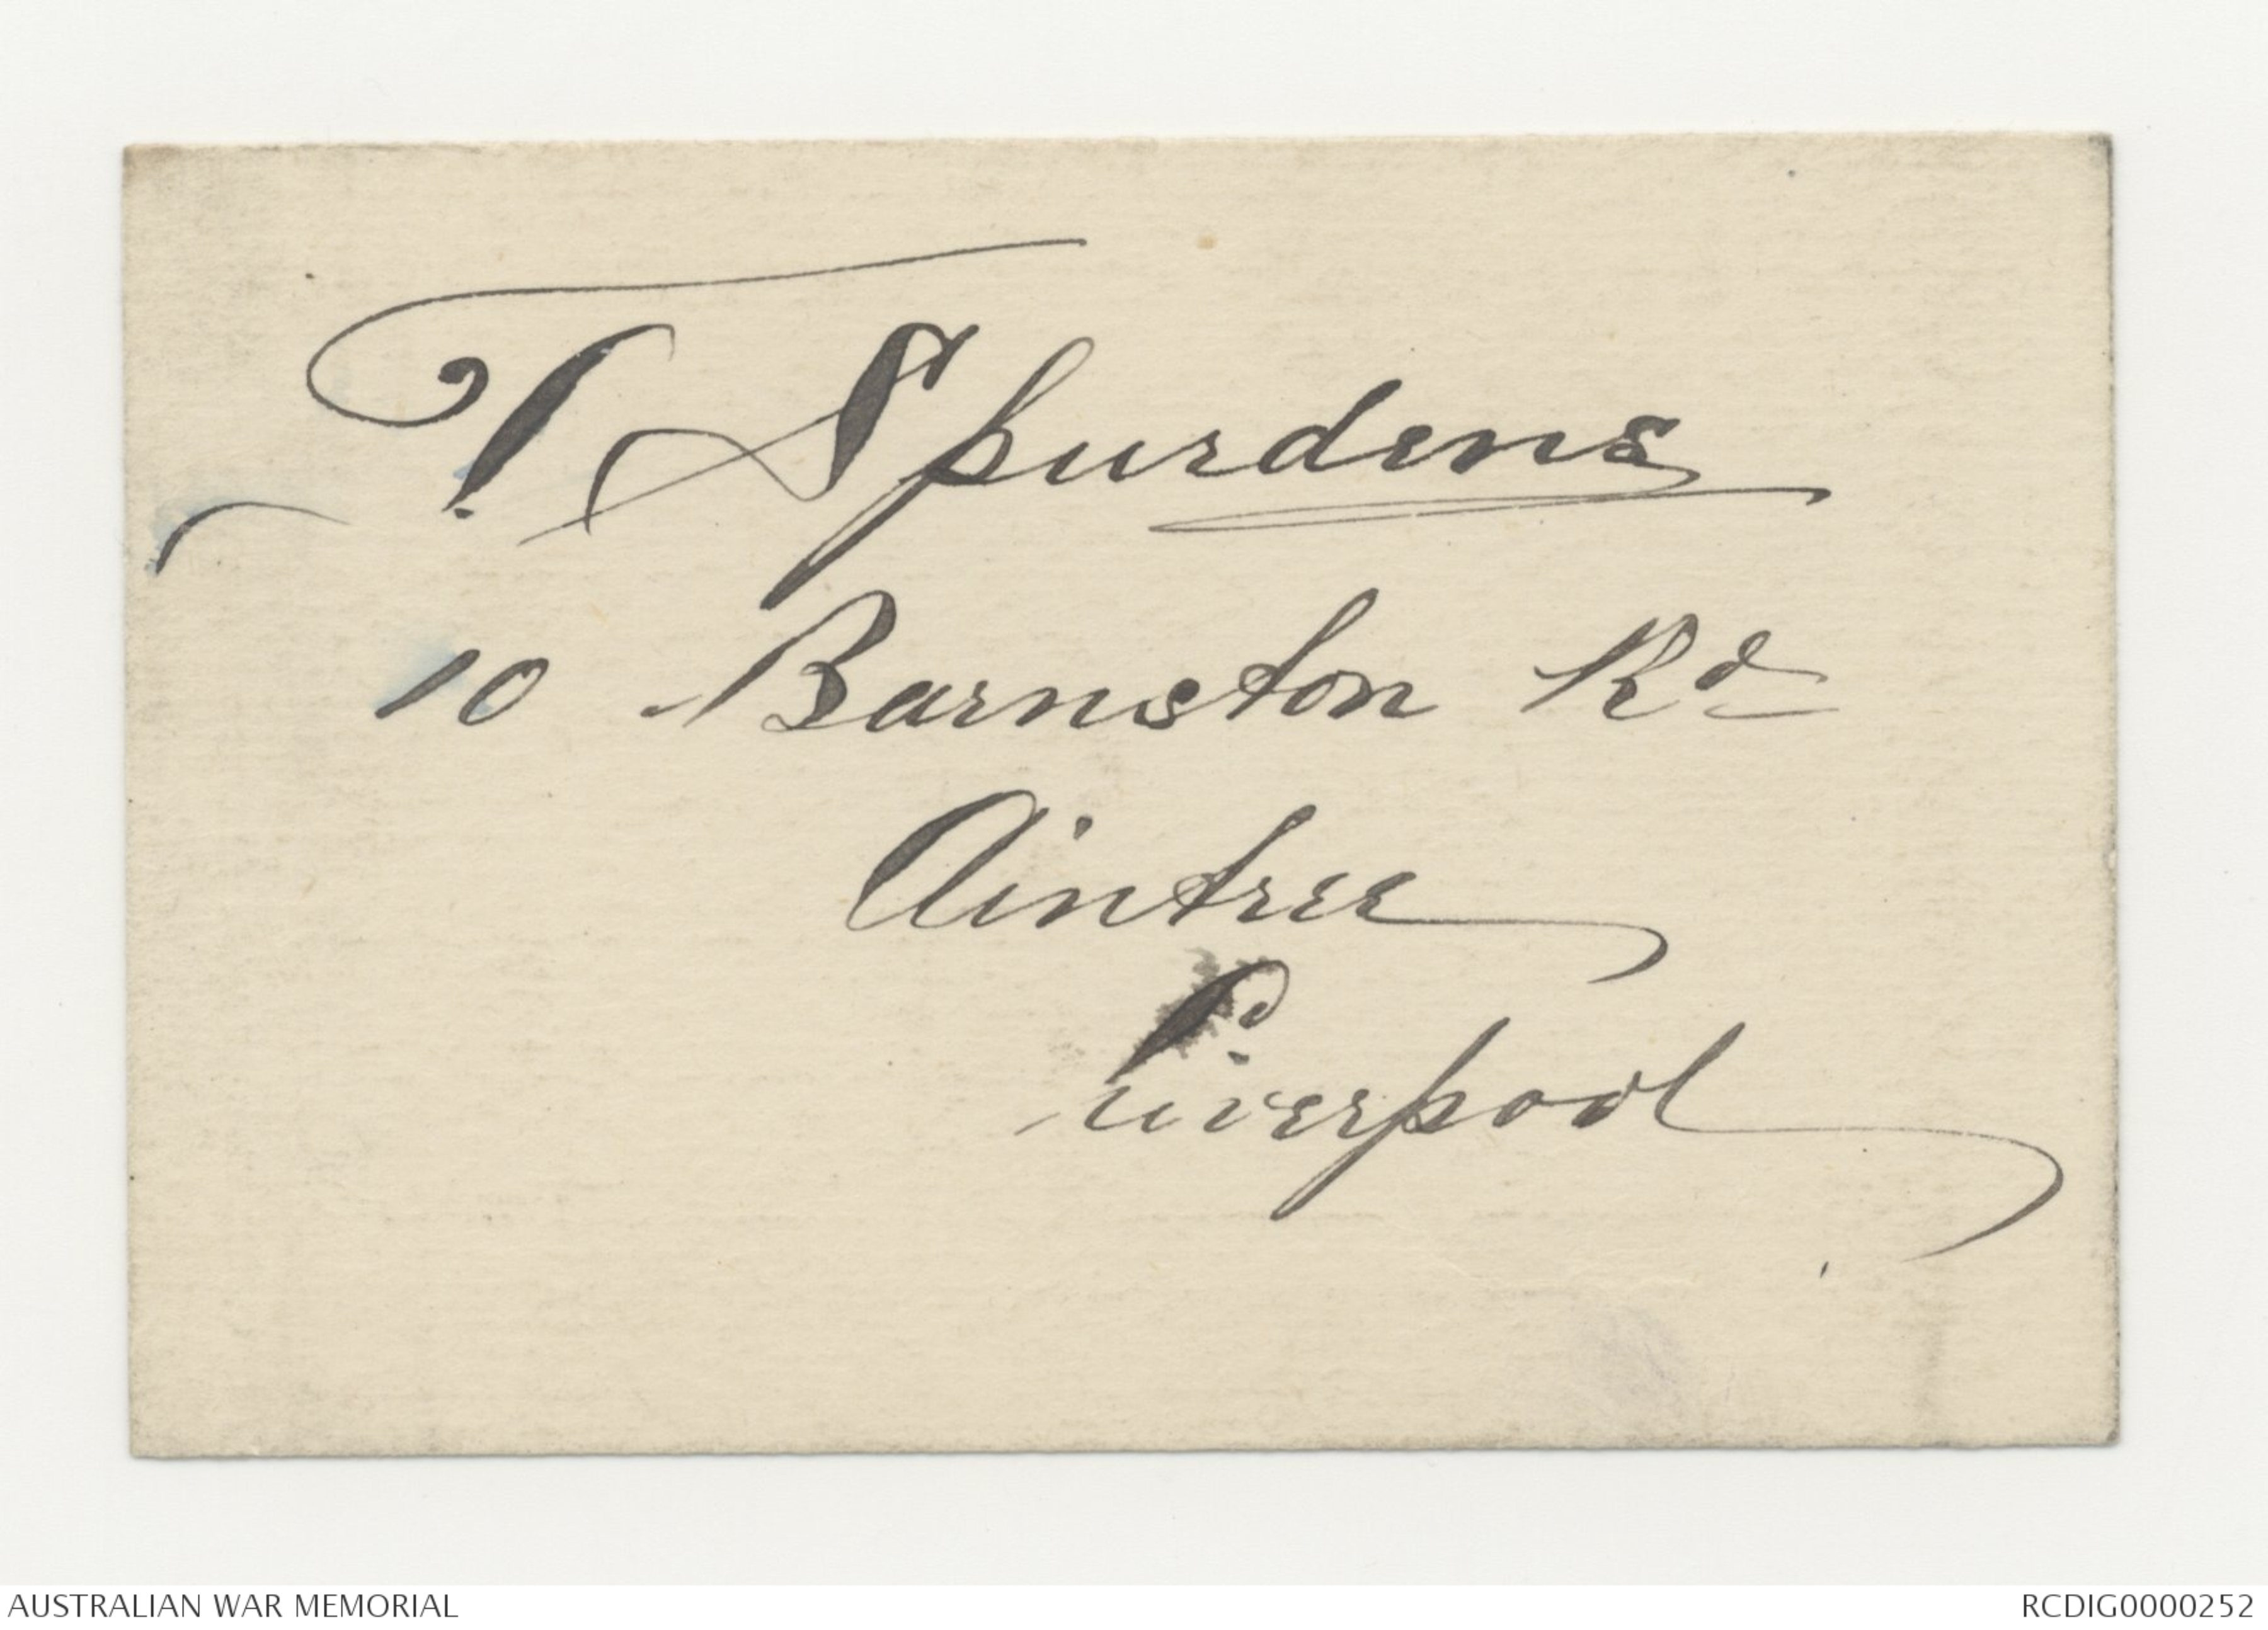 T Spurdens
10 Barnston Rd
Aintree
Liverpool
AUSTRALIAN WAR MEMORIAL RCDIG0000252